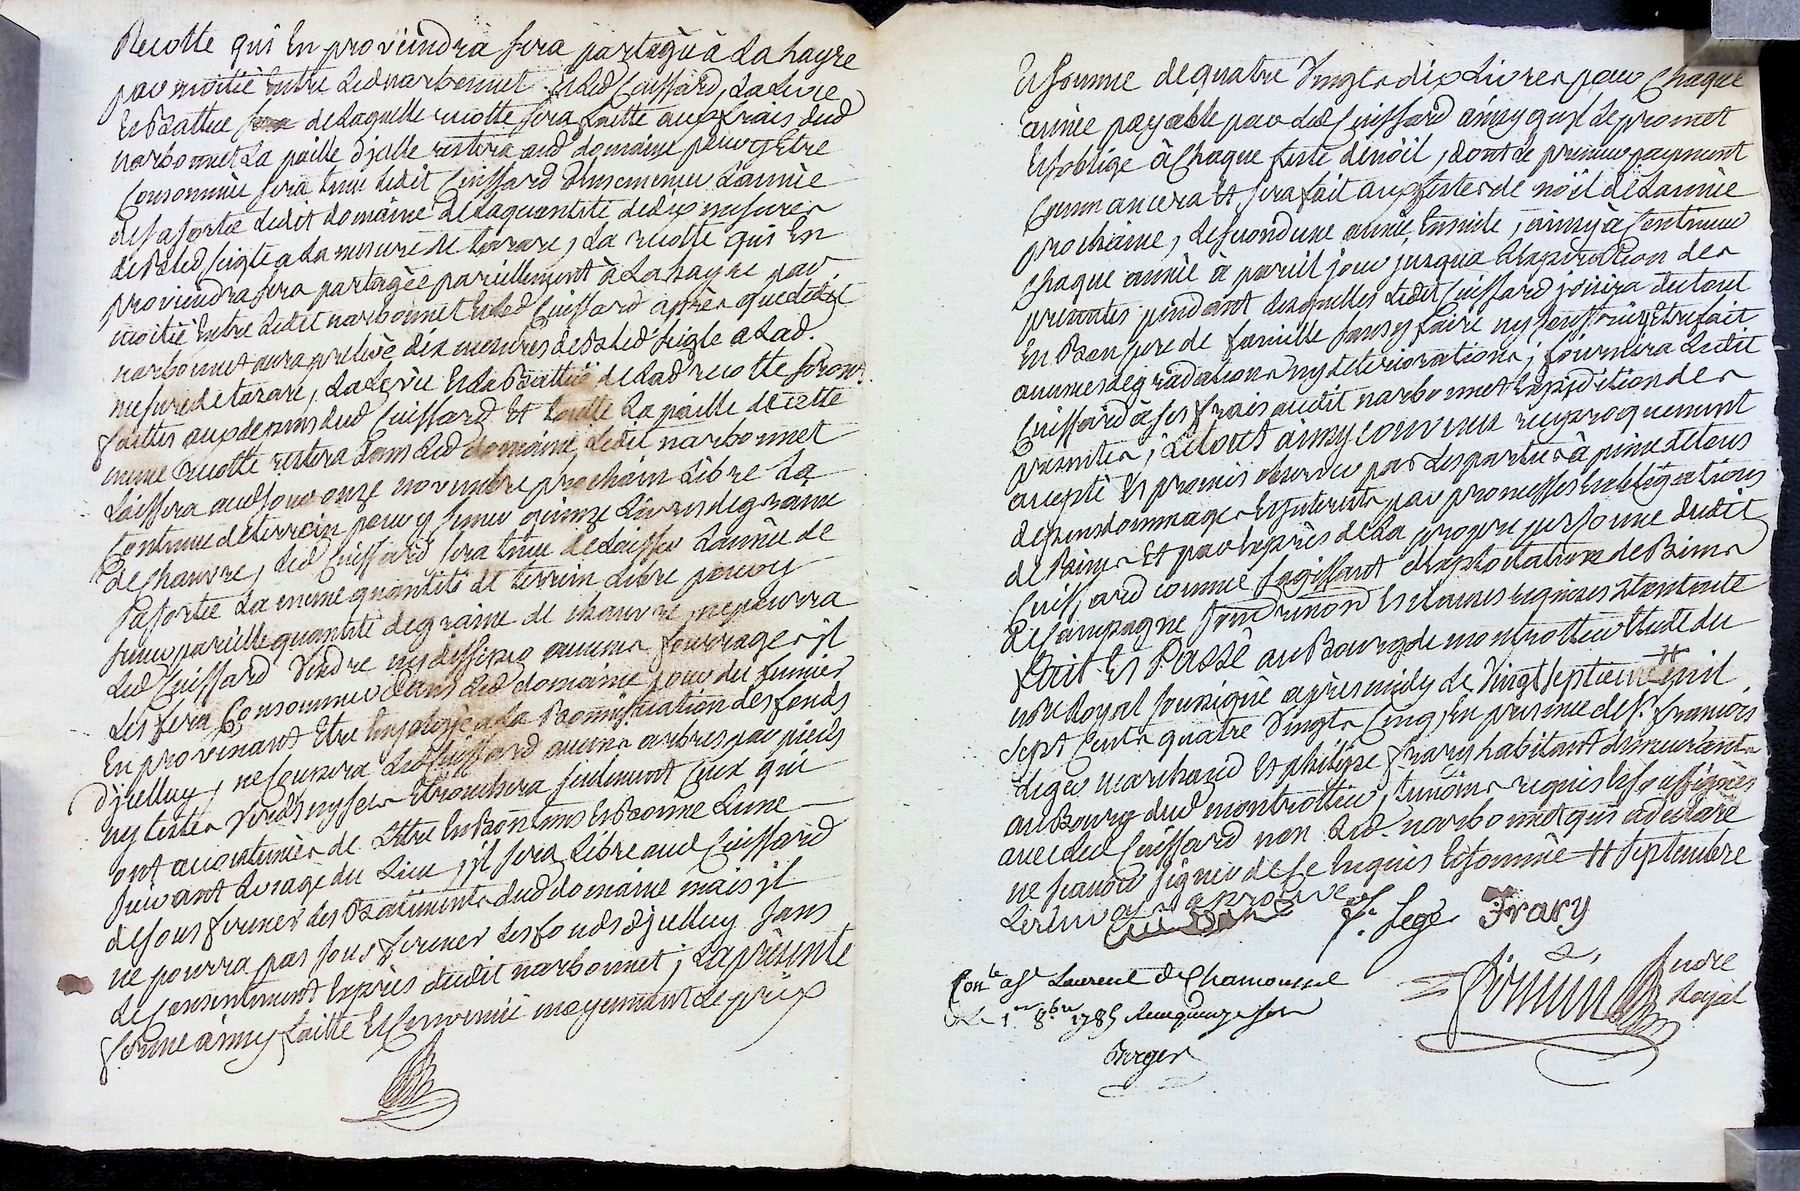 Recolte qui En proviendra sera partagéé à La hayre
par moitié Entre Led narbonnet Et Led Cuissard, La Levée
Et Battue de Laquelle recolte sera faitte aux frais dud
narbonnet La paille d'jcelle restera aud domaine pour y Etre
Consommée sera tenu Ledit Cuissard D'ensemencer L'année
de sa sortie Ledit domaine de La quantité de dix mesures
de Bled seigle a La mesure de tarare, La recolte qui En
proviendra sera partagée pareillement à La hayre par
moitié Entre Ledit narbonnet Et Led Cuissard après que Ledit
narbonnet aura prelevé dix mesures de Bled seigle a Lad.
mesure de tarare, La Levée Et La Battue de Lad recolte seront
faittes aux depens dud Cuissard Et toutte La paille de cette
meme recolte restera dans Led domaine, Ledit narbonnet
Laissera aud jour onze novembre prochain Libre La
Contenue de terrein pour y semer quinze Livres de graine
de chanvre, Led Cuissard sera tenu de Laisser L'année de
sa sortie La meme quantité de terrein Libre pour y
semer pareille quantité de graine de chanvre, ne pourra
Led Cuissard Vendre ny dissiper aucuns fourrages il
Les fera Consommer dans Led domaine pour du fumier
En provenant Etre Employé a La Bonnification des fonds
d'jcelluy, ne Coupera Led Cuissard aucuns arbres par pieds
ny testes Verds ny secs Ebranchera seulement Ceux qui
ont accoutumés de L'Etre En Bon tems Et Bonne Lune
suivant Lusage du Lieu, il sera Libre aud Cuissard
de sous fermer des Batiments dud domaine mais il
ne pourra pas sous fermer Les fonds d'jcelluy sans
Le Consentement Exprès dudit narbonnet; La présente
ferme ainsy faitte Et Convenüe moyennant Le prix
Et somme de quatre Vingts dix Livres pour Chaque
année payable par Led Cuissard ainsy qu'il Le promet
Et s'oblige à Chaque feste de noël, dont Le premier payement
Commancera Et sera fait aux festes de noël de L'année
prochaine, Le second une année Ensuite, ainsy à Continuer
Chaque année à pareil jour jusqua L'Expiration des
présentes pendant Lesquelles Ledit Cuissard jouira du tout
En Bon pere de famille sans y faire ny souffrir Etre fait
aucunes dégradations ny déteriorations; fournira Ledit
Cuissard à ses frais audit narbonnet Expedition des
présentes; Le tout ainsy convenu reciproquement
accepté Et promis observer par Les parties à peine de tous
depens dommages Et interets par promesses Et obligations
de Biens Et par Exprès de La propre personne dudit
Cuissard comme s'agissant d'Exploitation de Biens
de Campagne
fait Et Passé au Bourg de montrottier Etude du
nore Royal soussigné après midy Le Vingt septieme # mil
sept Cents quatre Vingts Cinq, En presence de sr. françois
Legey marchand Et philippe frary habitant demeurants
au Bourg dud montrottier, temoins requis Et soussignés
avec Led Cuissard non Led. narbonnet qui a declaré
ne sçavoir signer de Ce Enquis Et sommé # septembre
Le renvoy approuvé
f. Legé Frary
Conle a St Laurent de Chamousset
Le 1er 8bre 1785 Recu quinze sols
Berger
nore
Royal